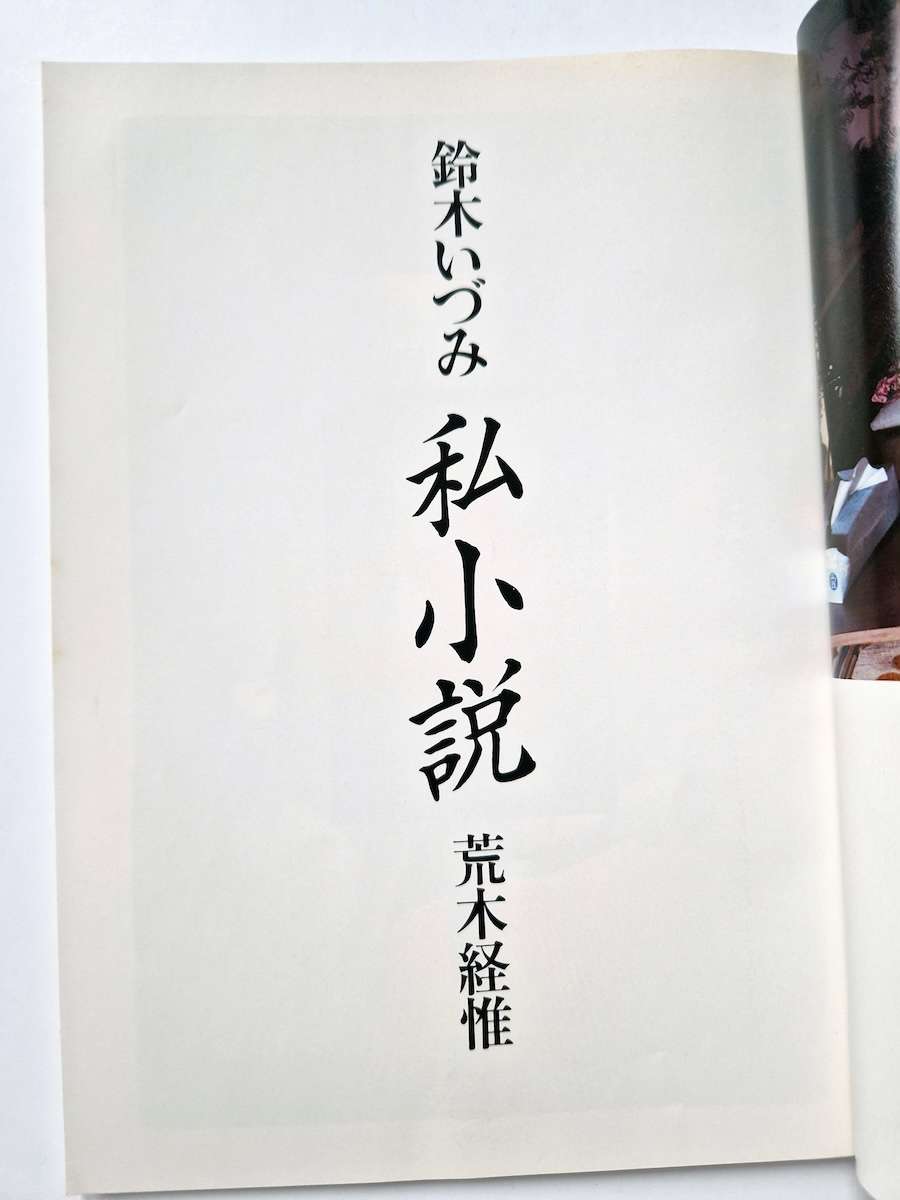 鈴木いづみ
私小説
荒木経惟